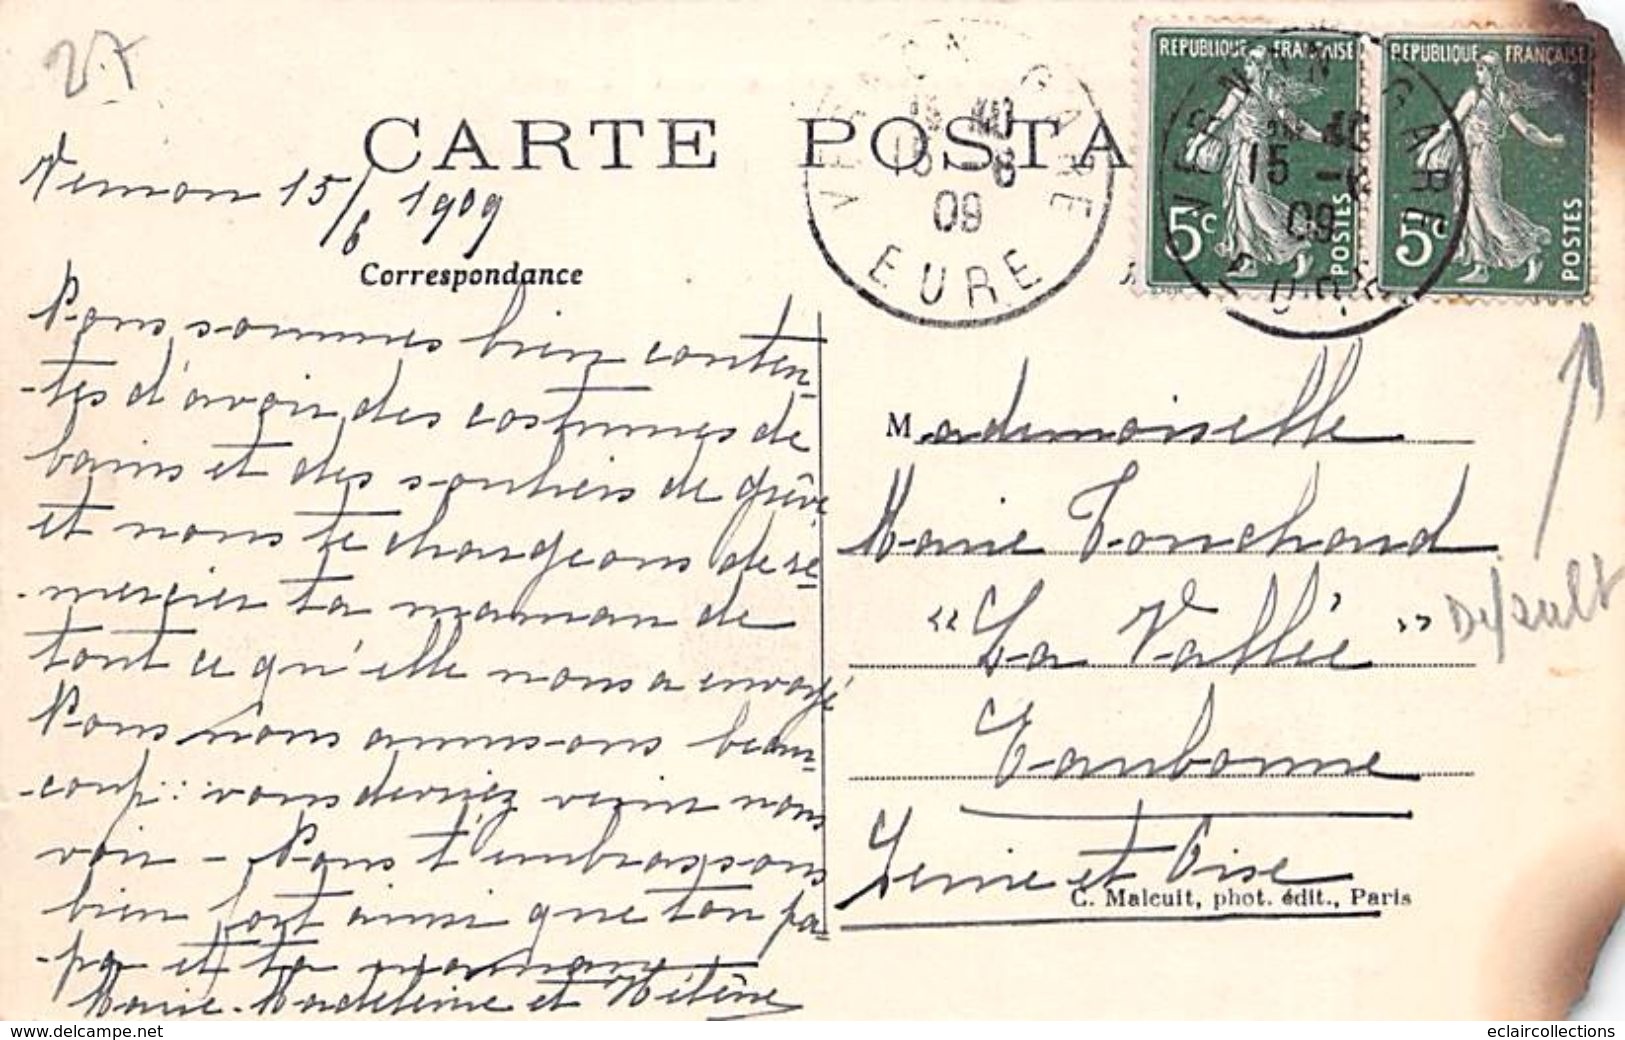 27
CARTE POSTA
REPUBLIQUE FRANÇAISE
5c
POSTES
REPUBLIQUE FRANÇAISE
5c
POSTES
VERNON GARE
15 -6
09
EURE
VERNON GARE
15 -6
09
EURE
Vernon 15/6 1909
Correspondance
Nous sommes bien conten-
-tes d'avoir des costumes de
bains et des souliers de grève
et nous te chargeons de re-
-mercier ta maman de
tout ce qu'elle nous a envoyé
Nous nous amusons beau-
-coup : vous devriez venir nous
voir - Nous t'embrassons
bien fort ainsi que ton pa-
-pa et ta maman
Marie-Madeleine et Hélène
Mademoiselle
Marie Touchard
"La Vallée"
Eaubonne
Seine et Oise
C. Malcuit, phot. édit., Paris
Default
www.delcampe.net
eclaircollections